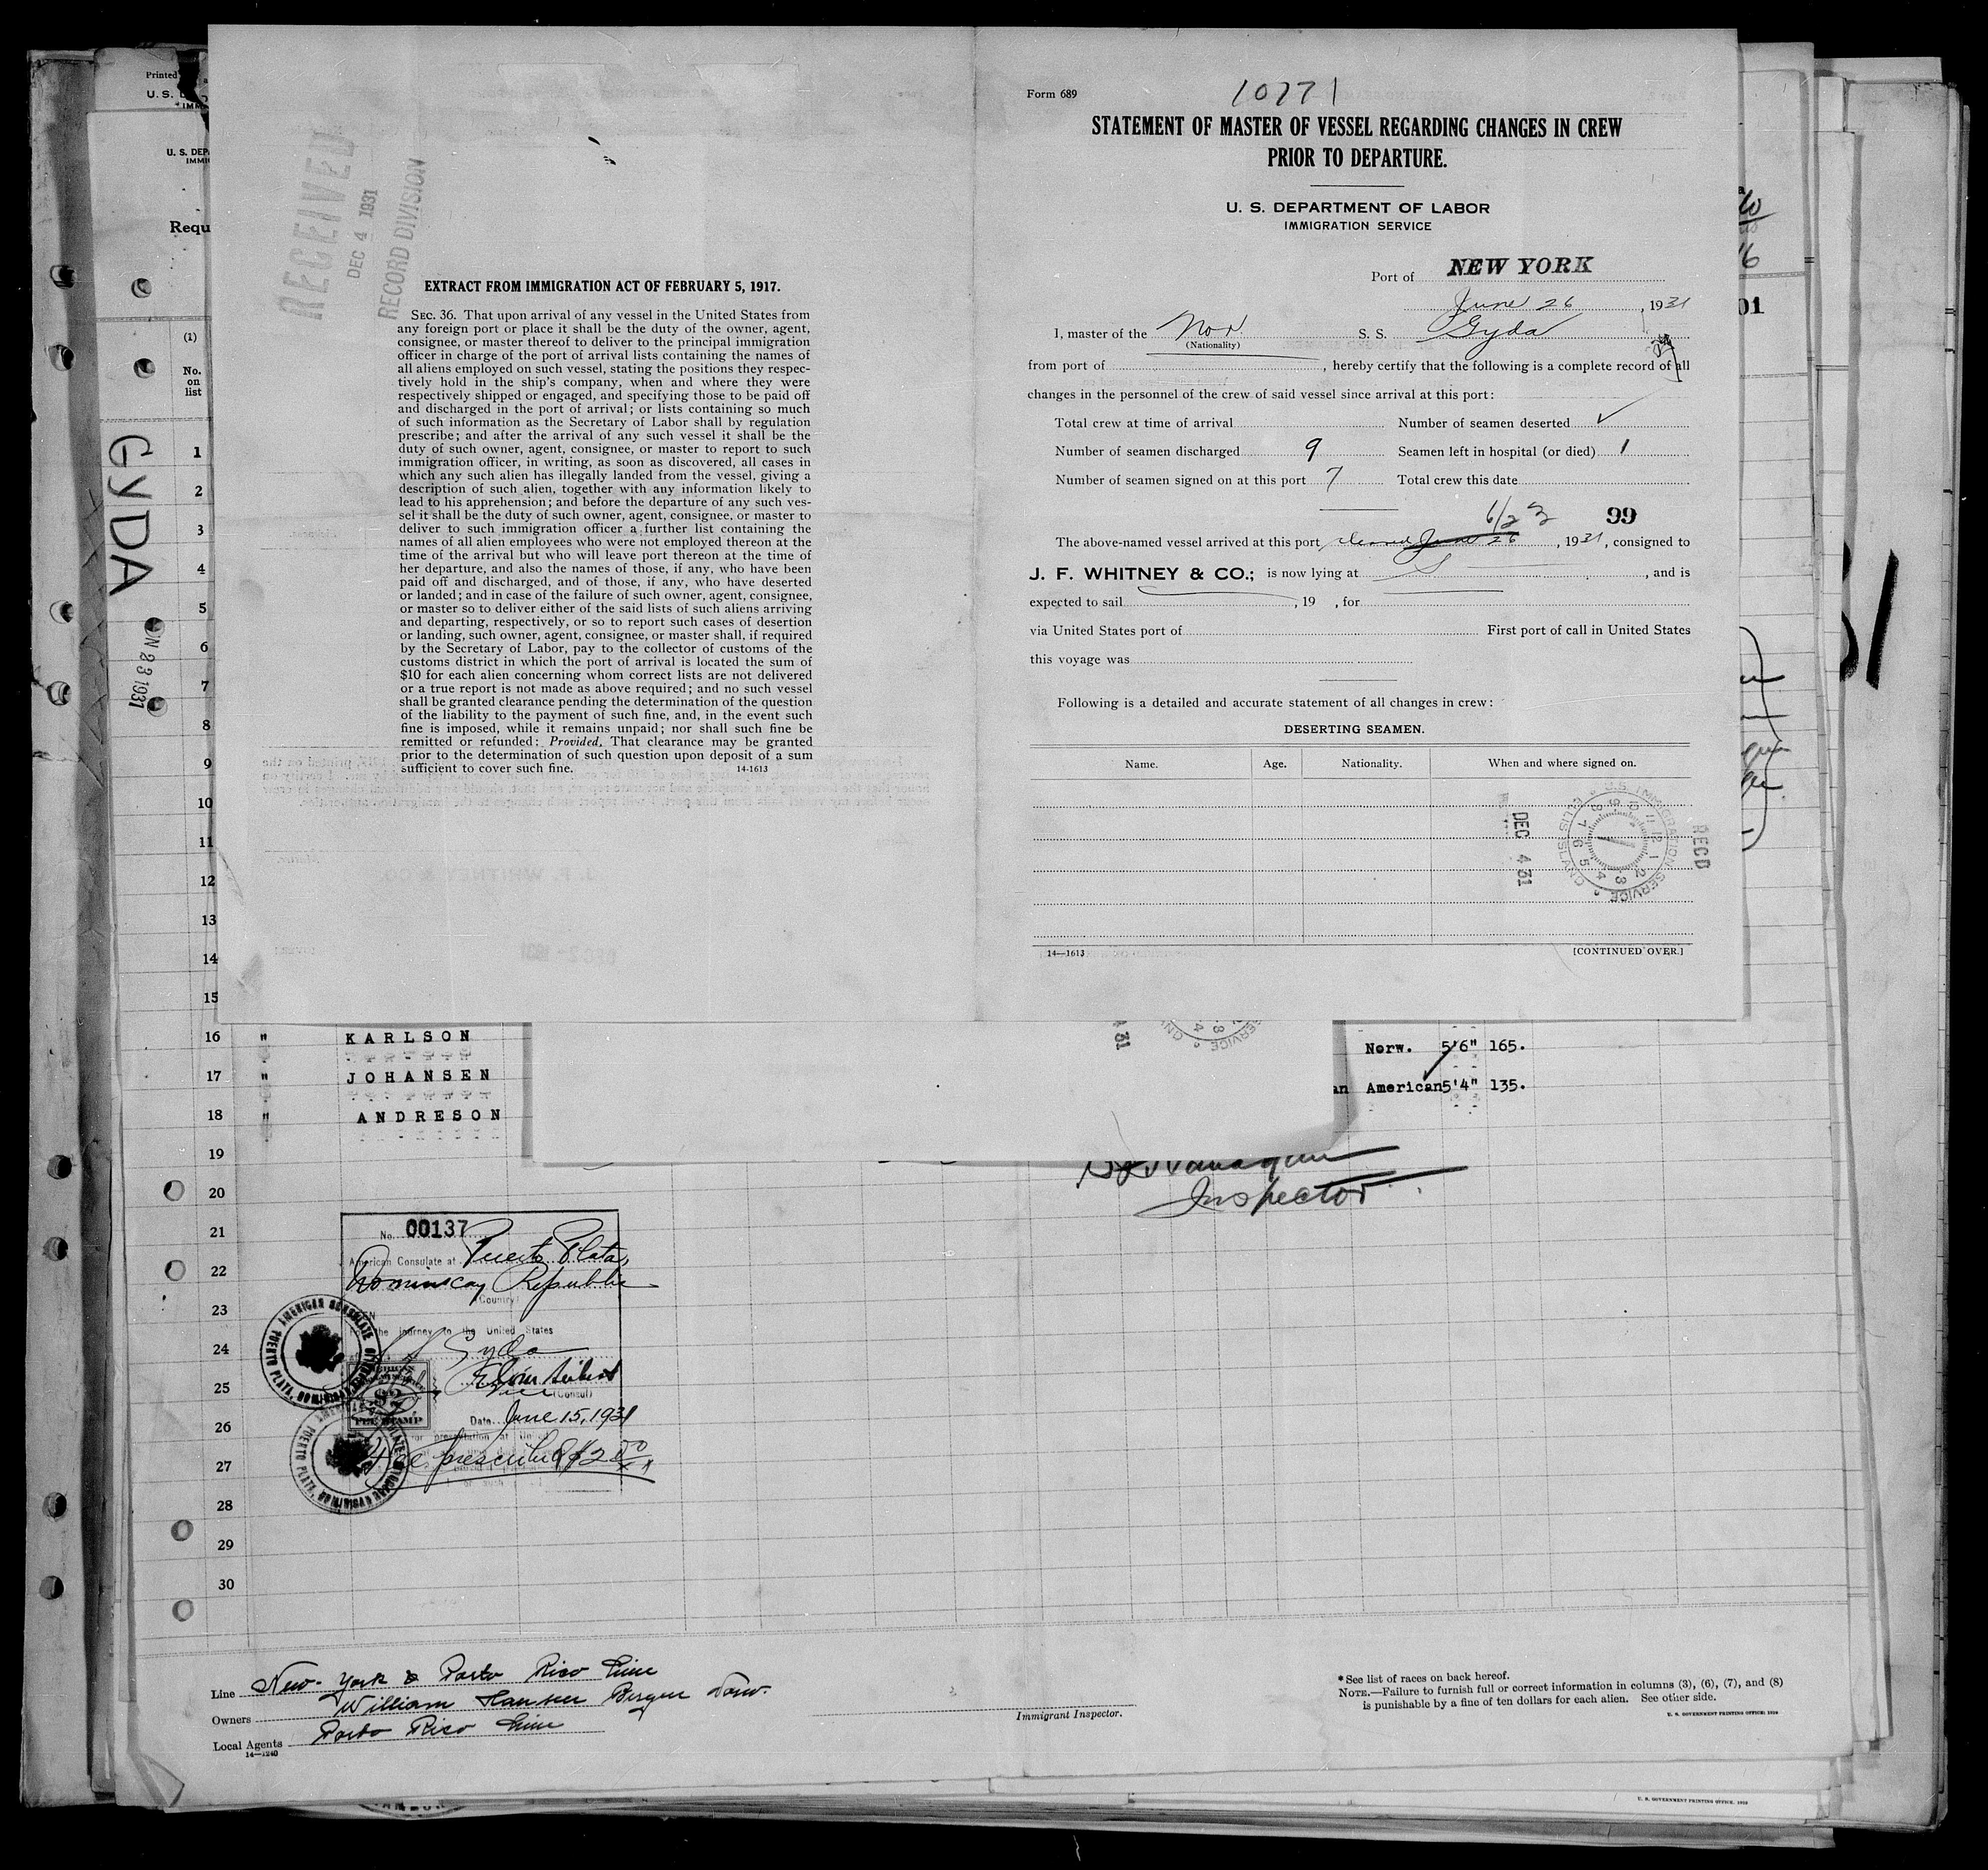 Printed
U. S.
U. S. DEP
IMMI
Requ
(1)
No.
on
list
GYDA
N 23 1931
RECEIVED
DEC 4 1931
RECORD DIVISION
EXTRACT FROM IMMIGRATION ACT OF FEBRUARY 5, 1917.
SEC. 36. That upon arrival of any vessel in the United States from
any foreign port or place it shall be the duty of the owner, agent,
consignee, or master thereof to deliver to the principal immigration
officer in charge of the port of arrival lists containing the names of
all aliens employed on such vessel, stating the positions they respec-
tively hold in the ship's company, when and where they were
respectively shipped or engaged, and specifying those to be paid off
and discharged in the port of arrival; or lists containing so much
of such information as the Secretary of Labor shall by regulation
prescribe; and after the arrival of any such vessel it shall be the
duty of such owner, agent, consignee, or master to report to such
immigration officer, in writing, as soon as discovered, all cases in
which any such alien has illegally landed from the vessel, giving a
description of such alien, together with any information likely to
lead to his apprehension; and before the departure of any such ves-
sel it shall be the duty of such owner, agent, consignee, or master to
deliver to such immigration officer a further list containing the
names of all alien employees who were not employed thereon at the
time of the arrival but who will leave port thereon at the time of
her departure, and also the names of those, if any, who have been
paid off and discharged, and of those, if any, who have deserted
or landed; and in case of the failure of such owner, agent, consignee,
or master so to deliver either of the said lists of such aliens arriving
and departing, respectively, or so to report such cases of desertion
or landing, such owner, agent, consignee, or master shall, if required
by the Secretary of Labor, pay to the collector of customs of the
customs district in which the port of arrival is located the sum of
$10 for each alien concerning whom correct lists are not delivered
or a true report is not made as above required; and no such vessel
shall be granted clearance pending the determination of the question
of the liability to the payment of such fine, and, in the event such
fine is imposed, while it remains unpaid; nor shall such fine be
remitted or refunded: Provided, That clearance may be granted
prior to the determination of such question upon deposit of a sum
sufficient to cover such fine. 14-1613
10771
Form 689
STATEMENT OF MASTER OF VESSEL REGARDING CHANGES IN CREW
PRIOR TO DEPARTURE.
U. S. DEPARTMENT OF LABOR
IMMIGRATION SERVICE
Port of NEW YORK
June 26, 1931
I, master of the Nor. S. S. Gyda
(Nationality)
from port of , hereby certify that the following is a complete record of all
changes in the personnel of the crew of said vessel since arrival at this port:
Total crew at time of arrival Number of seamen deserted ✓
Number of seamen discharged 9 Seamen left in hospital (or died) 1
Number of seamen signed on at this port 7 Total crew this date
6/23 99
The above-named vessel arrived at this port cleared June 26, 1931, consigned to
J. F. WHITNEY & CO.; is now lying at , and is
expected to sail , 19 , for
via United States port of First port of call in United States
this voyage was
Following is a detailed and accurate statement of all changes in crew:
DESERTING SEAMEN.
Name. Age. Nationality. When and where signed on.
DEC 4 31
U.S. IMMIGRATION SERVICE
ELLIS ISLAND
RECD
14—1613 [CONTINUED OVER.]
1
2
3
4
5
6
7
8
9
10
11
12
13
14
15
16 " KARLSON Norw. 5'6" 165.
17 " JOHANSEN an American 5'4" 135.
18 " ANDRESON
19
20
21
22
23
24
25
26
27
28
29
30
Inspector
No. 00137
American Consulate at Puerto Plata,
Dominican Republic
(Country)
the journey to the United States
Gyda
(Consul)
Date June 15, 1931
Fee prescribed $2.00
AMERICAN CONSULATE
PUERTO PLATA, DOMINICAN
FEE STAMP
Line New-York & Porto Rico Line
Owners William Hansen Bergen Norw.
Local Agents Porto Rico Line
14—1240
Immigrant Inspector.
*See list of races on back hereof.
NOTE.—Failure to furnish full or correct information in columns (3), (6), (7), and (8)
is punishable by a fine of ten dollars for each alien. See other side.
U. S. GOVERNMENT PRINTING OFFICE: 1930
U. S. GOVERNMENT PRINTING OFFICE: 1930